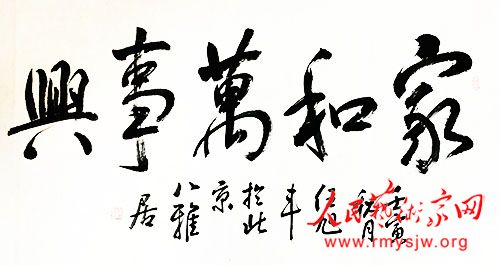 家和萬事興
壬寅
秋月
於北
京
八雅
居
人民藝術家网
www.rmysjw.org